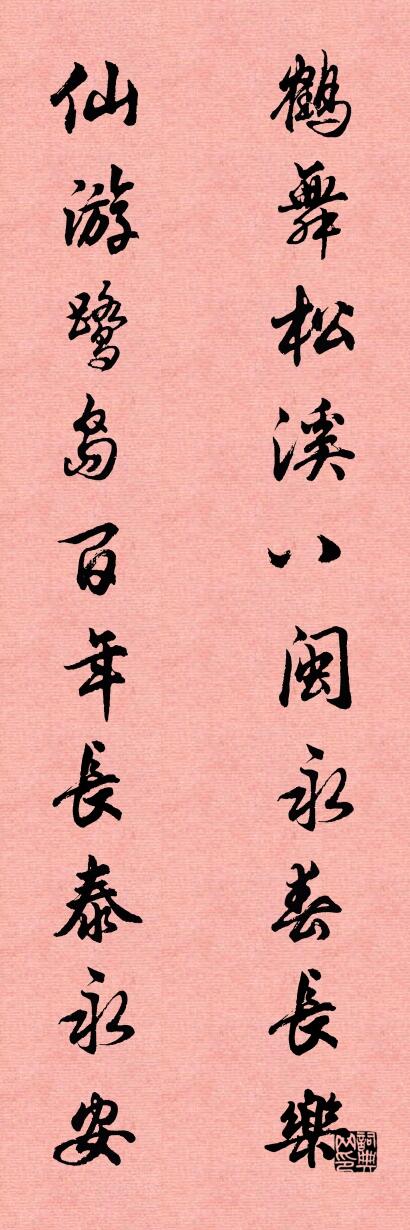 鶴舞松溪八閩永春長樂
仙游鷺島百年長泰永安